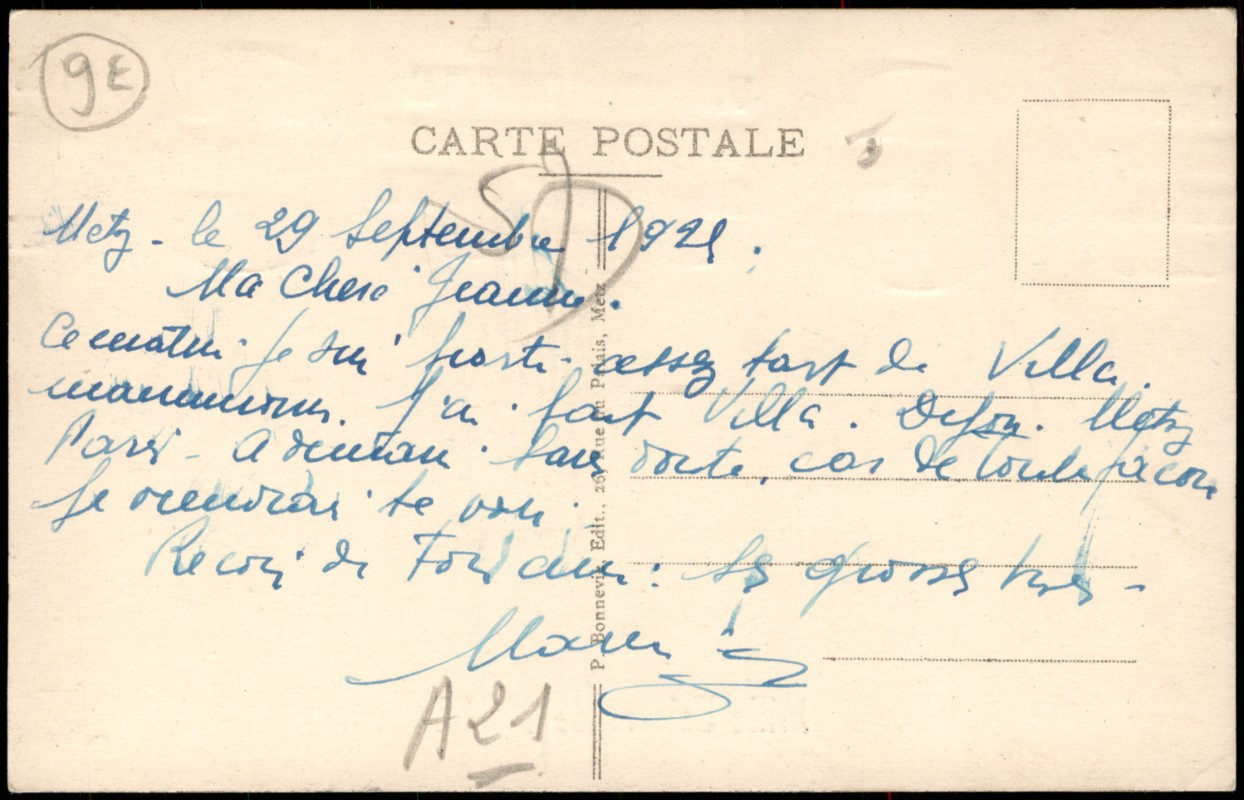 9E
CARTE POSTALE
Metz - le 29 Septembre 19
Ma Chere Jeanne.
Ce matin je sui parti assez tart de Villa.
J'ai fait Villa. Dijon. Metz
Paris - A demain sans doute, car de toute façon
Je viendrai te voir.
Recois de Ton : Ses grosses bises -
P. Bonnevie, Edit., 26, Rue du Palais, Metz
A21